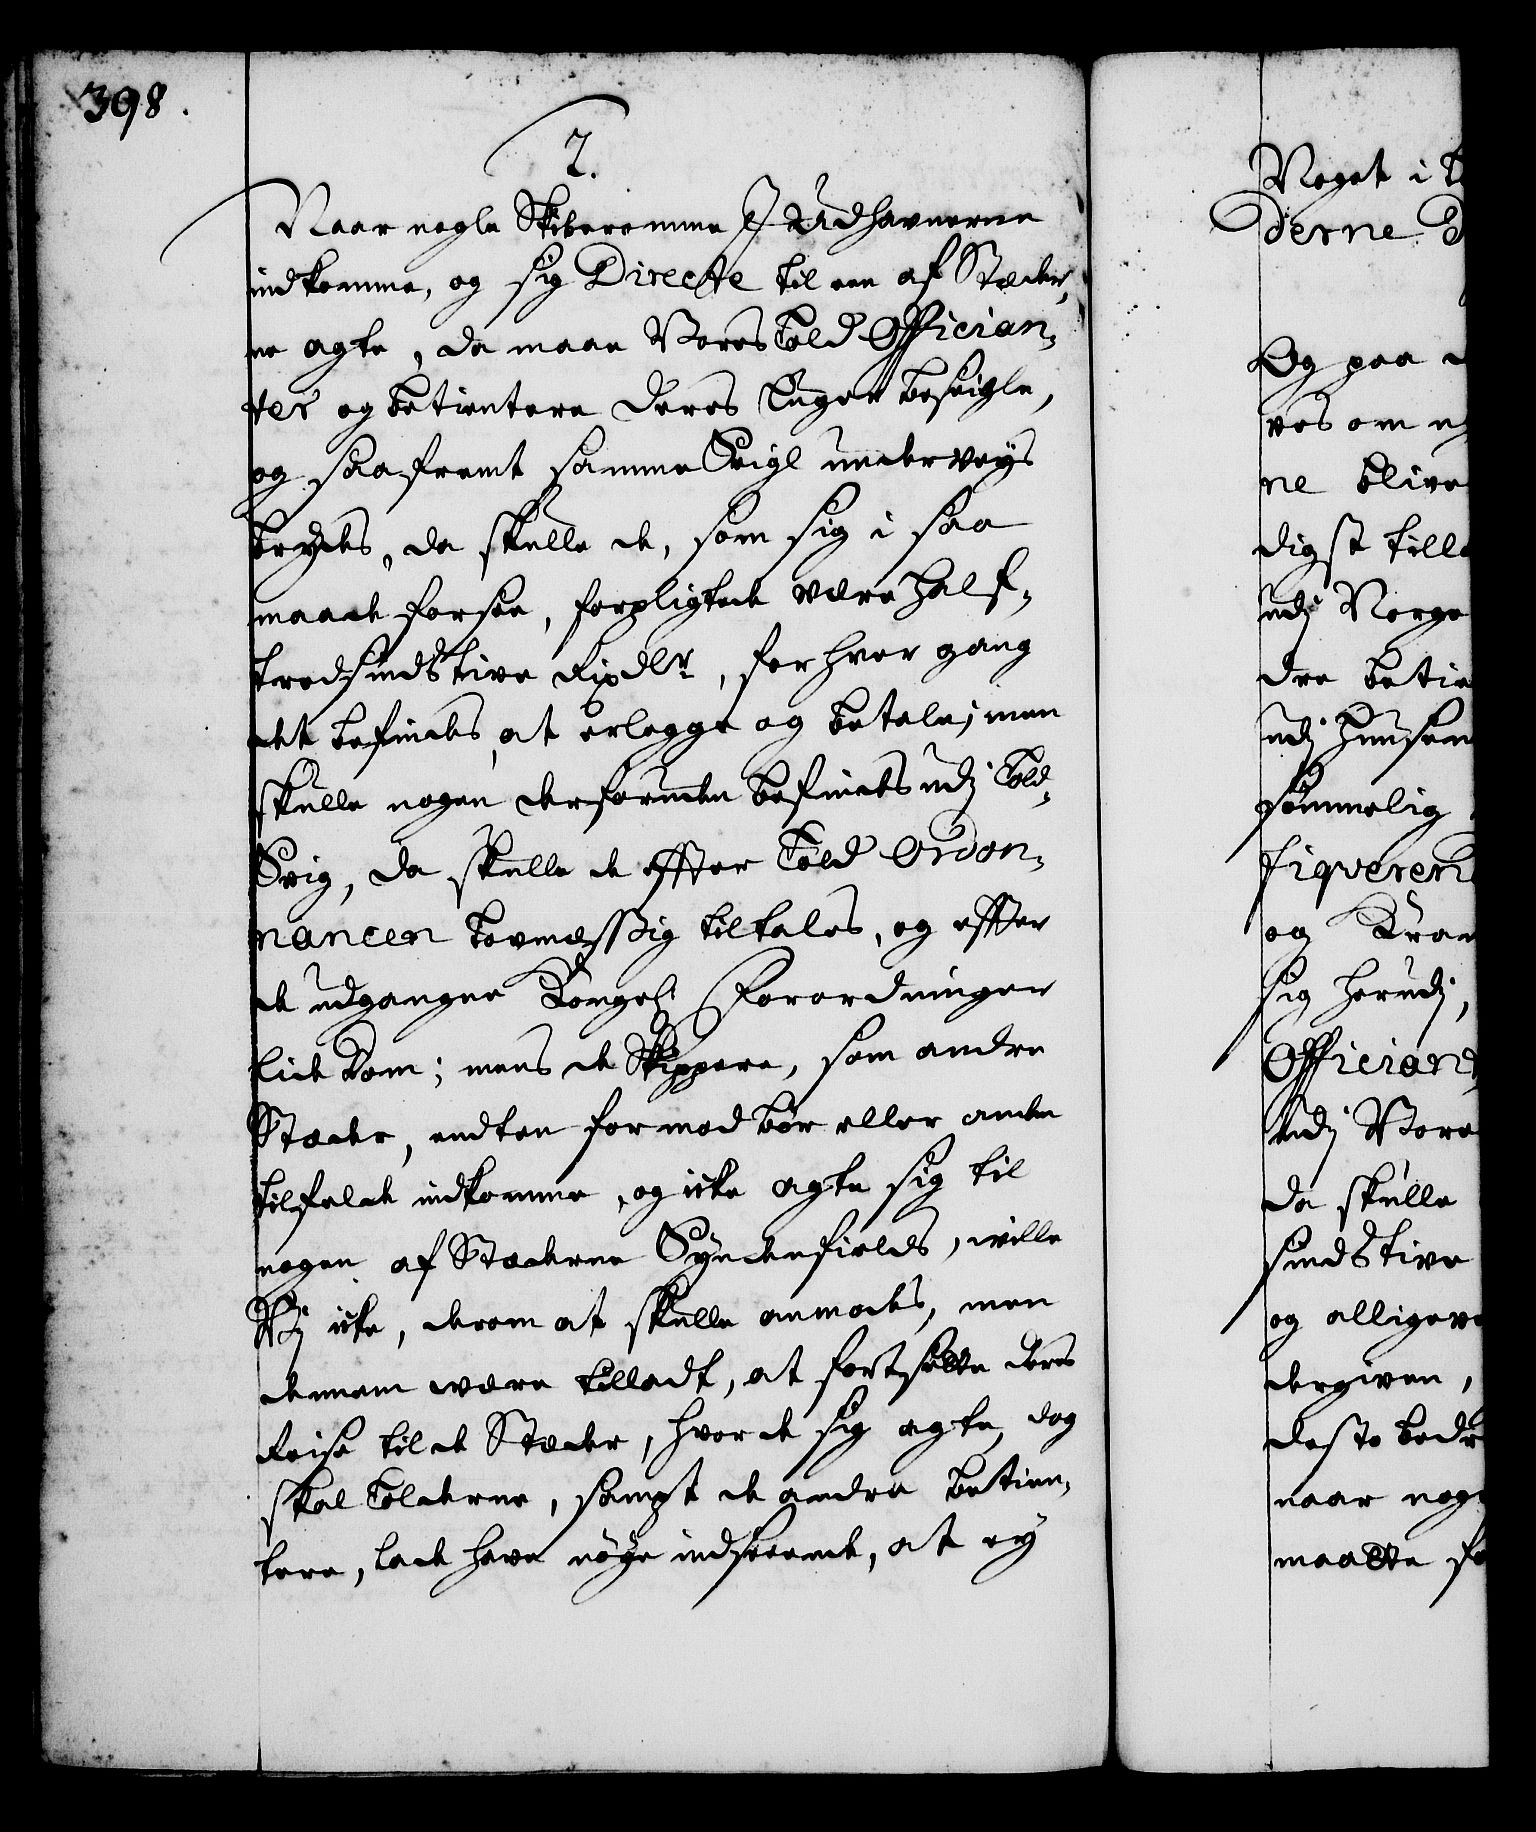 398.
2.
Naar nogle Skibe komme I Udhavnerne
indkomme, og sig Directe til een af Stæder,
ne agte, da maae Vores Told Official,
ter og betientere deres Luger beseigle,
og saa fremt samme Seigl undervejs
brydes, da skulle de, som sig i saa
maade forsee, forpligtede være half,
tredsindstive Rixdlr, for hver gang
det befindes, at erlegge og betale; men
skulle nogen derforuden befindes udj Told,
Svig, da skulle de effter Told Ordon,
nancen lovmæssig tiltales, og effter
de udgangne Kongel: Forordninger
lide Dom; mens de Skippere, som andre
Stæder, endten for modbør eller anden
tilfelde indkomme, og icke agte sig til
nogen af Stæderne Syndenfields, wille
Wj icke, derom at skulle anmodes, men
dennem være tilladt, at fortsætte deres
Reise til de Stæder, hvor de sig agte, dog
skal Tolderne, sampt de andre betien,
tere, lade have nøye indseende, at ey
Noget i
derne
Og paa
ves om
ne blive
digst till
udj Norge
dre betie
udj
sømmelig
fiqvere
og
sig herudj,
Officiant
udj Vore
da skulle
sindstive
og alligeve
dergiven,
desto bedr
naar nog
maatte fo